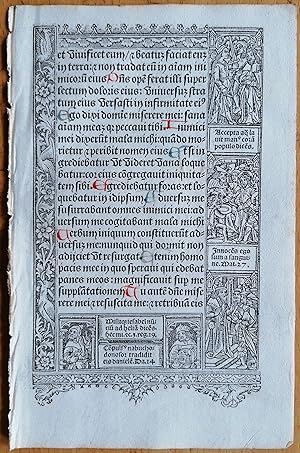 et Vivificet eum / & beatum faciat eum
in terra: & non tradat eū in aīam ini
micorū eius Dn̄s opē ferat illi super
lectum doloris eius: Vniversum stra
tum eius Versasti in infirmitate ei⁹
Ego dixi domine miserere mei: sana
aīam meā: q̄ peccavi tibi Inimici
mei dixerūt mala michi: quādo mo
rietur / & peribit nomen eius Et si in
grediebatur Vt Videret Vana loque
batur: cor eius cōgregavit iniquita
tem sibi Egrediebatur foras: et lo
quebatur in idipsum Adversū me
susurrabant omnes inimici mei: ad
versum me cogitabant mala michi
Verbum iniquum constituerūt ad
versum me: nunquid qui dormit non
adiiciet Vt resurgat Etenim homo
pacis mee in quo speravi: qui edebat
panes meos: magnificavit sup me
supplantationem Tu autē dn̄e mise
rere mei: & resuscita me: & retribuā eis
Accepta aq̄ la
vit man⁹ corā
populo dicēs.
Innocēs ego
sum a sangui
ne. Mat. 27.
Misitq; iesabel nū
ciū ad heliā dicēs
hec mi. &c. 3. reg. 19.
Cōpuls⁹ nabucho
donosor tradidit
eis danielē. Da. 14